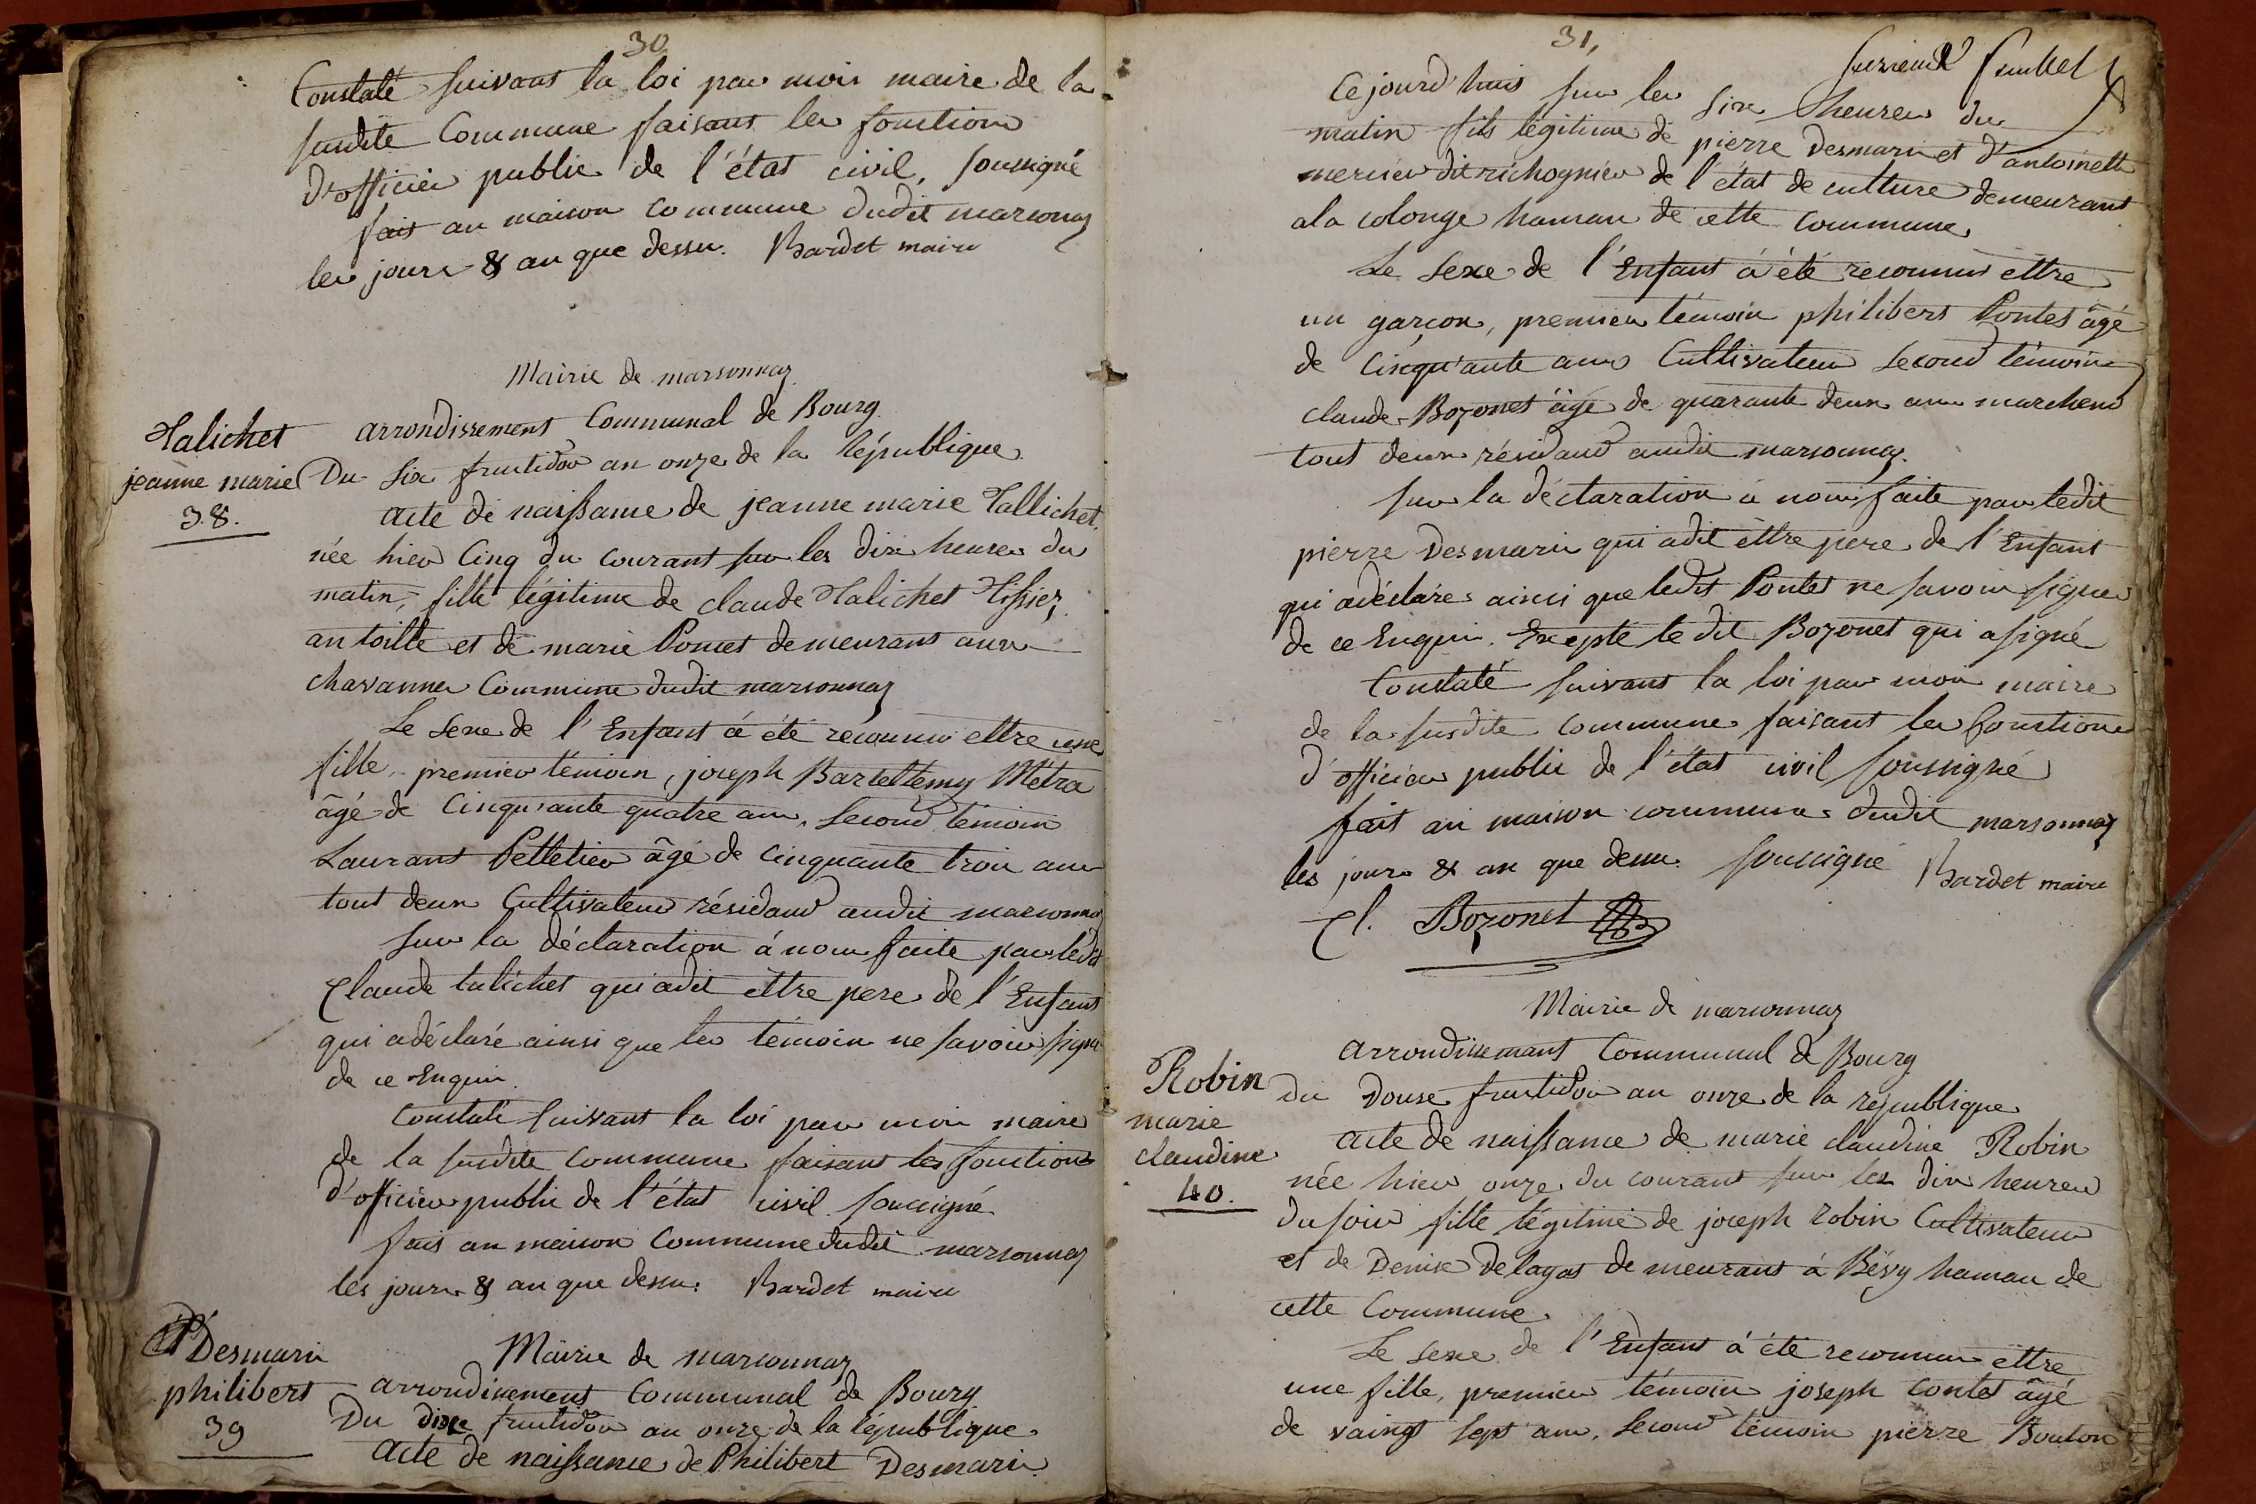 30
Constaté suivant la loi par moi maire de la
susdite Commune faisant les fonctions
D'officier public de l'état civil, soussigné
fait an maison commune dudit marsonnaz
les jours & an que dessu. Bardet maire
Mairie de marsonnaz
arrondissement Communal de Bourg
Talichet
jeanne marie
38.
Du Six fructidor an onze de la République
acte de naissance de jeanne marie Tallichet
née hier Cinq du courant sur les dix heures du
matin, fille légitime de claude Talichet Tissier
an toille et de marie Poncet demeurant aux
chavannes Commune dudit marsonnaz
Le sexe de l'Enfant à été reconnus ettre une
fille, premier témoin, joseph Bartellemy Métra
âgé de Cinqu'ante quatre ans, second témoin
Laurant Pelletier âgé de cinquante trois ans
tout deux Cultivateur résidant audit marsonnaz
sur la déclaration à nous faite par ledit
Claude talichet qui adit ettre pere de l'Enfant
qui adéclaré ainsi que les témoin ne savoir signé
de ce Enquis.
Constaté suivant la loi par moi maire
de la susdite commune faisant les fonctions
d'officier public de l'état civil souccigné
fait an maison Commune dudit marsonnaz
les jours & an que dessu. Bardet maire
Desmaris
philibert
39
Mairie de marsonnaz
arrondissement Communal de Bourg
Du dixe fructidor an onze de la république
acte de naissance de Philibert Desmaris
31,
Cejourd'huis sur les six heures du
matin fils légitime de pierre Desmaris et d'antoinette
mercier dit richognier de l'état de culture demeurant
ala colonge hamau de cette commune
Le sexe de l'Enfant à été reconnus ettre
un garçon, premier témoin philibert Pontet âgé
de Cinqu'ante ans Cultivateur second témoin
claude Bozonet âgé de quarante deux ans marchend
tout deux résidant audit marsonnaz.
sur la déclaration à nous faite par ledit
pierre Desmaris qui adit ettre pere de l'Enfant
qui adéclaré ainsi que ledit Pontet ne savoir signer
de ce Enquis. Excepté le dit Bozonet qui asigné
Constaté suivant la loi par moi maire
de la susdite commune faisant les fonctions
d'officier public de l'état civil soussigné
fait an maison commune dudit marsonnaz
les jours & an que dessu. souccigné Bardet maire
Cl. Bozonet
Mairie de marsonnaz
arrondissemant Communal de Bourg
Robin
marie
claudine
40.
du Douse fructidor an onze de la république
acte de naissance de marie claudine Robin
née hier onze du courant sur les dix heures
du soir fille légitime de joseph robin Cultivateur
et de Denise Delagat demeurant à Bévy hamau de
cette Commune
Le sexe de l'Enfant à été reconnus ettre
une fille, premier témoin joseph contet âgé
de vaingt sept ans, second témoin pierre Bouton